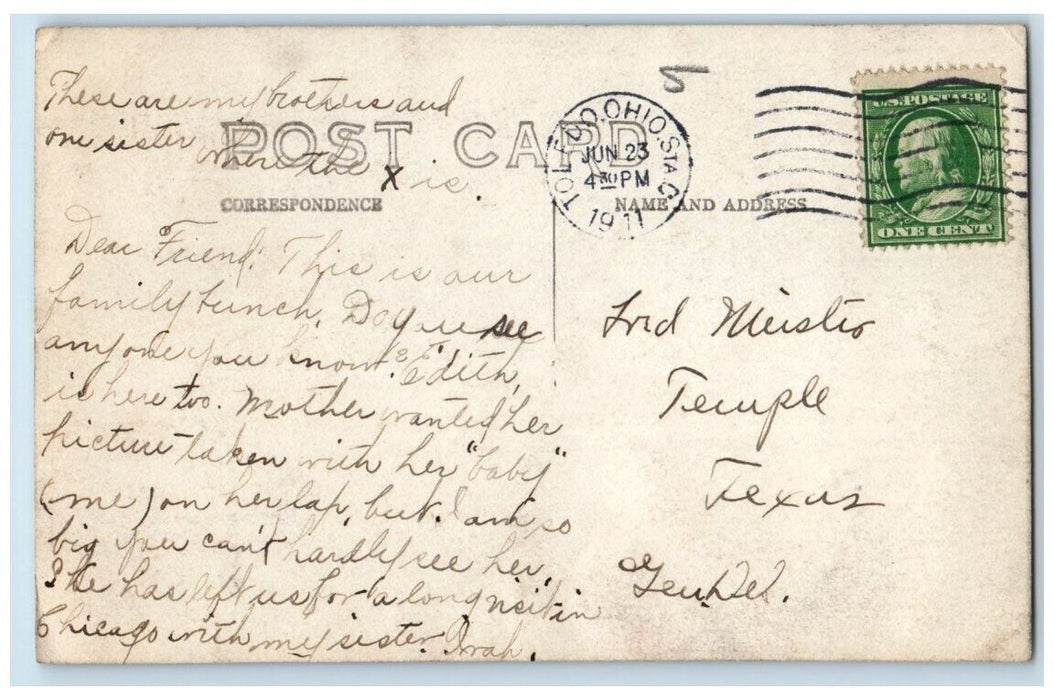 These are my brothers and
one sister where the X is.
POST CARD
CORRESPONDENCE
Dear Friend: This is our
family bunch. Do you see
anyone you know? "Edith,"
is here too. Mother wanted her
picture taken with her "baby"
(me) on her lap, but I am so
big you can't hardly see her.
She has left us for a long visit in
Chicago with my sister.
5
TOLEDO, OHIO. STA. C
JUN 23
4 30 PM
1911
U.S. POSTAGE
ONE CENT
NAME AND ADDRESS
Fred Meister
Temple
Texas
Gen. Del.